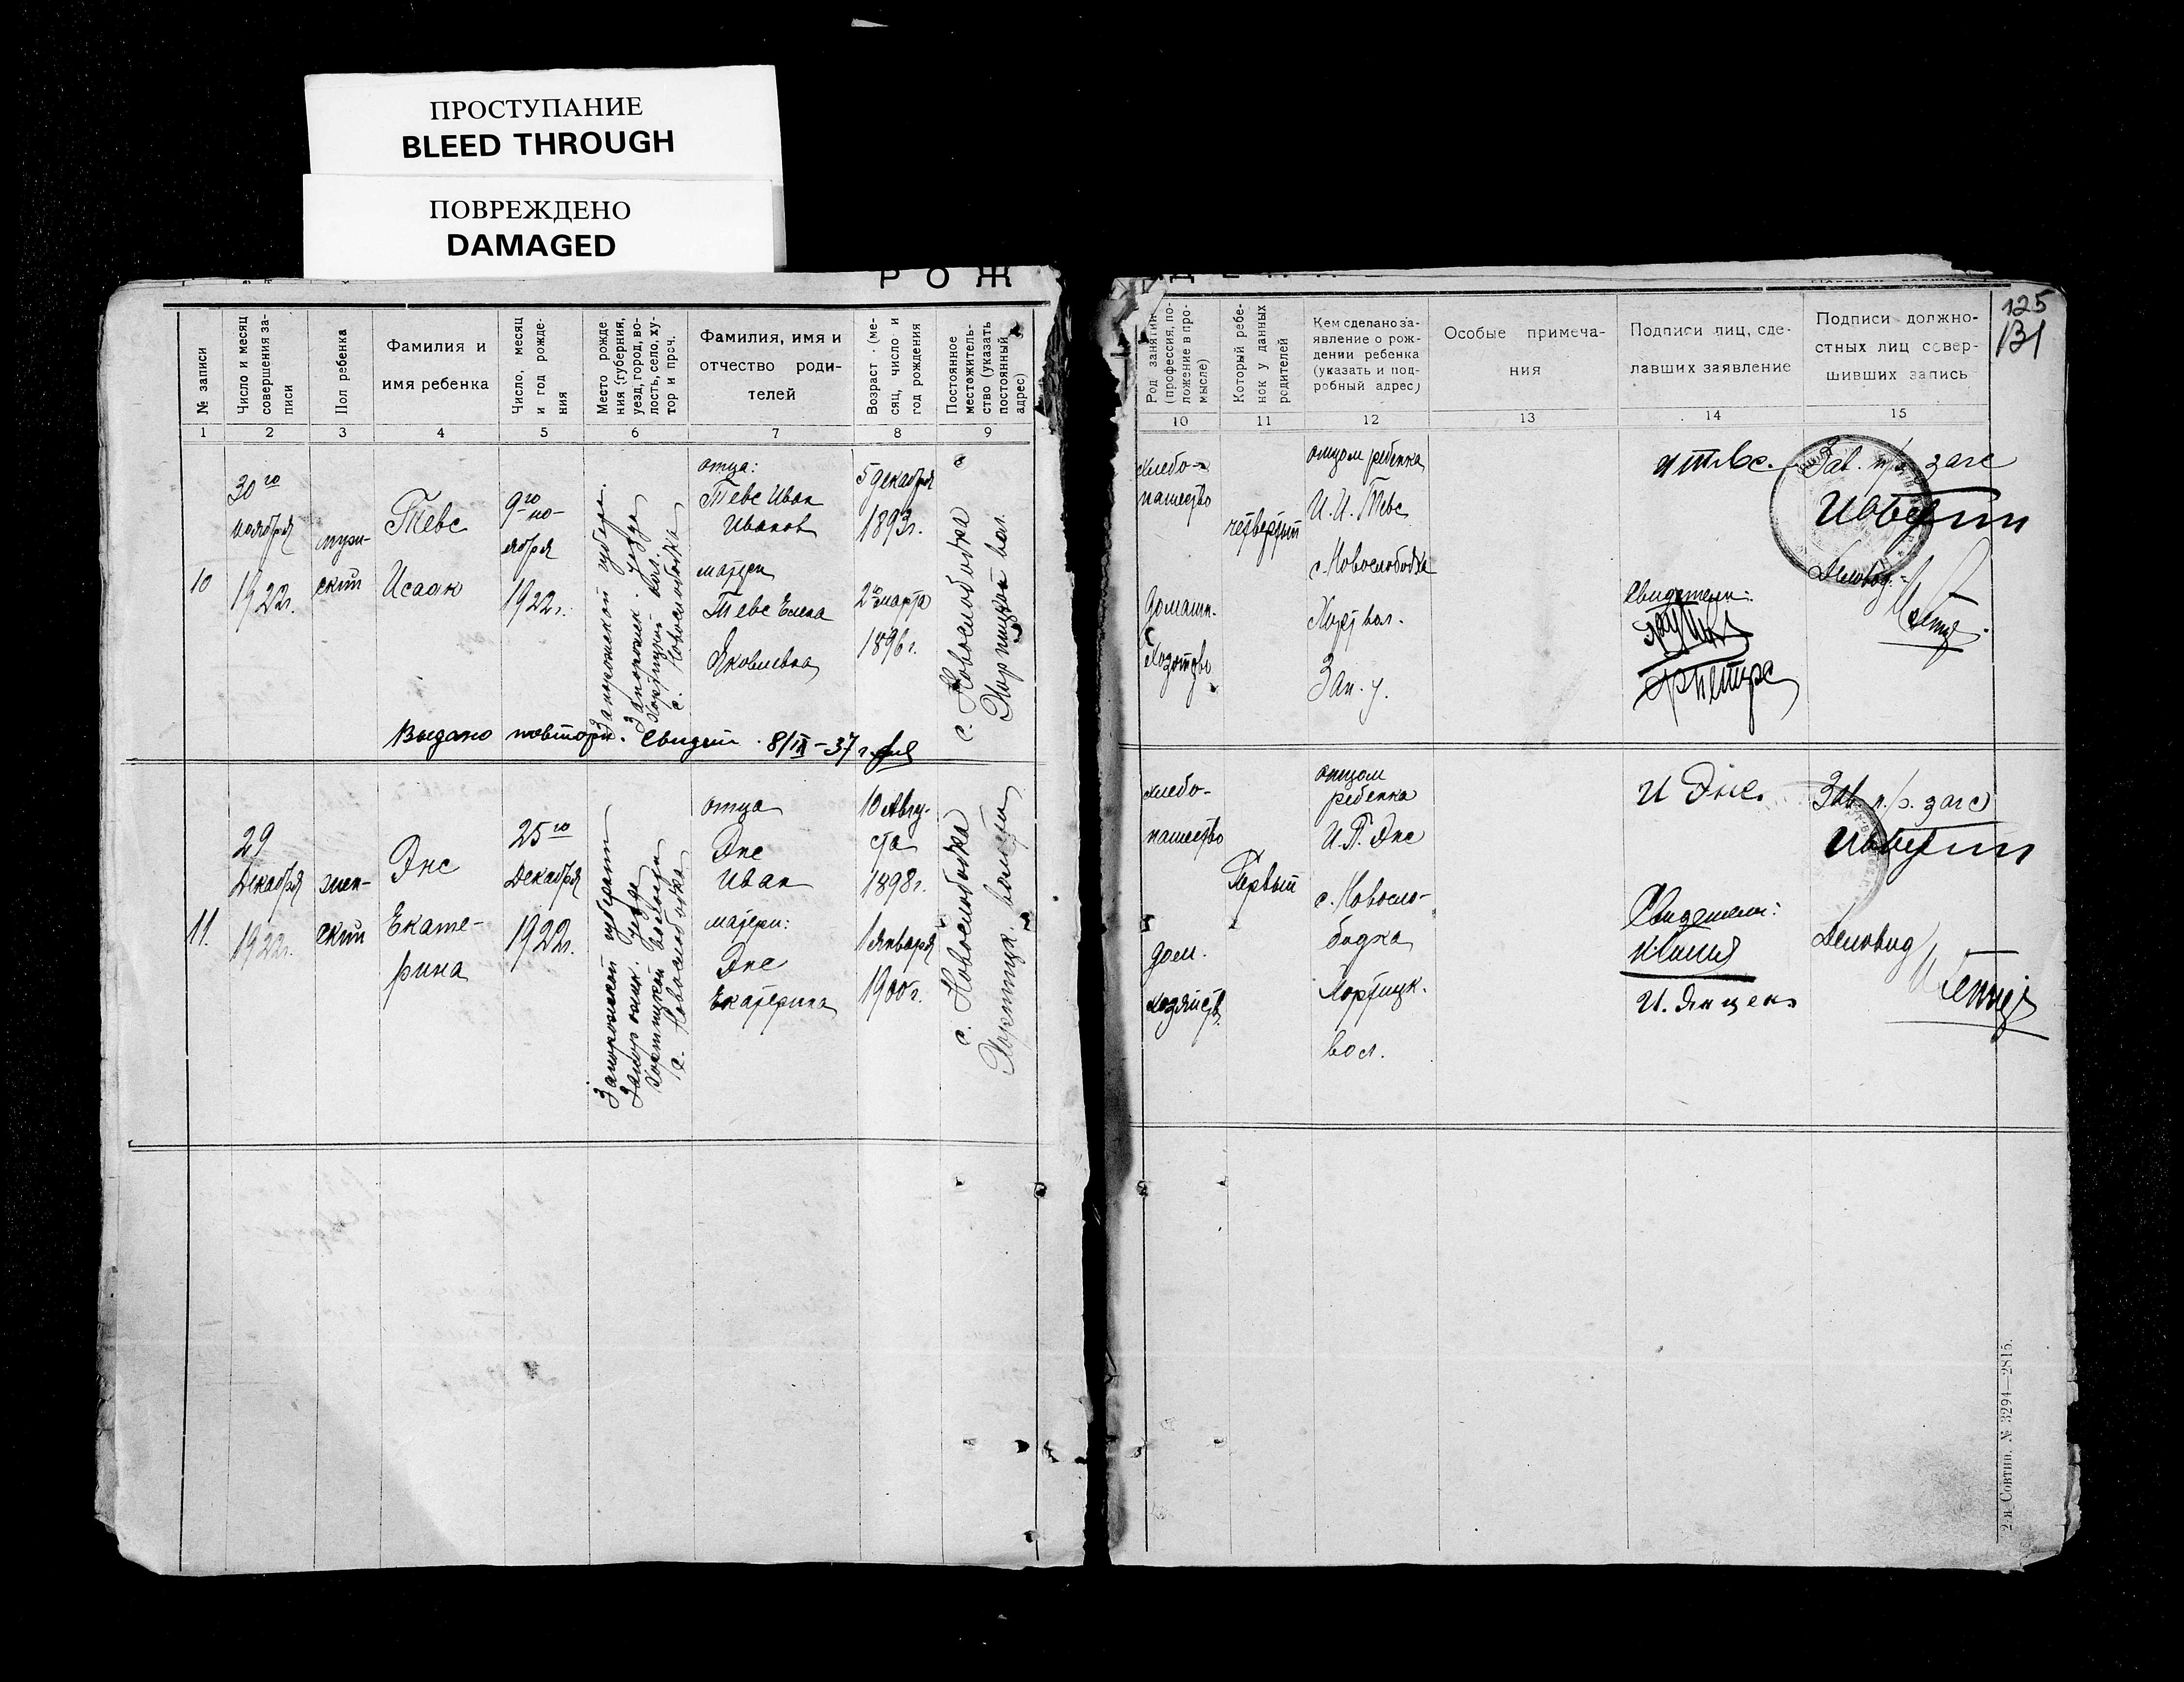 ПРОСТУПАНИЕ
BLEED THROUGH
ПОВРЕЖДЕНО
DAMAGED
РОЖ
125
131
№ записи
Число и месяц
совершения за-
писи
Пол ребенка
Фамилия и
имя ребенка
Число, месяц
и год рожде-
ния
Место рожде
ния (губерния,
уезд, город, во-
лость, село, ху-
тор и проч.
Фамилия, имя и
отчество роди-
телей
Возраст (ме-
сяц, число и
год рождения
Постоянное
местожитель-
ство (указать
постоянный
адрес)
Род занятий
(профессия, по-
ложение в про-
мысле)
Который ребе-
нок у данных
родителей
Кем сделано за-
явление о рож-
дении ребенка
(указать и под-
робный адрес)
Особые примеча-
ния
Подписи лиц, сде-
лавших заявление
Подписи должно-
стных лиц совер-
шивших запись
1 2 3 4 5 6 7 8 9 10 11 12 13 14 15
10
30го
ноября
1922г.
муж-
ский
Тевс
Исаак
9го но-
ября
1922г.
Запорожской губерн.
Запорожск. уезда
Хортицкой вол.
с. Новослободка
отца:
Тевс Иван
Иванов
матери
Тевс Елена
Яковлевна
5 декабря
1893г.
2го марта
1896г.
с. Новослободка
Хортицкой вол.
хлебо-
пашество
домашн.
четвертый
отцом ребенка
И. И. Тевс
с. Новослободка
Хорт вол.
Зап. у.
И Тевс.
Свидетели:
Зав. п/о загс
Деловод.
Выдано повторн. свидет. 8/IX-37 г.
11.
29
Декабря
1922г.
жен-
ский
Энс
Екате-
рина
25го
Декабря
1922г.
Запорожской губернии
Запорожск. уезда
Хортицкой волости
с. Новослободка
отца
Энс
Иван
матери:
Энс
Екатерина
10 Авгу-
ста
1898г.
1 января
1900г.
с. Новослободка
Хортицк. волости
хлебо-
пашество
дом.
хозяйств.
Первый
отцом
ребенка
И. П. Энс
с. Новосло-
бодка
Хортицк.
вол.
И Энс.
Свидетели:
И. Янцен
Зав. п/о. загс
Деловод
2-я Совтип. № 3294—2815.